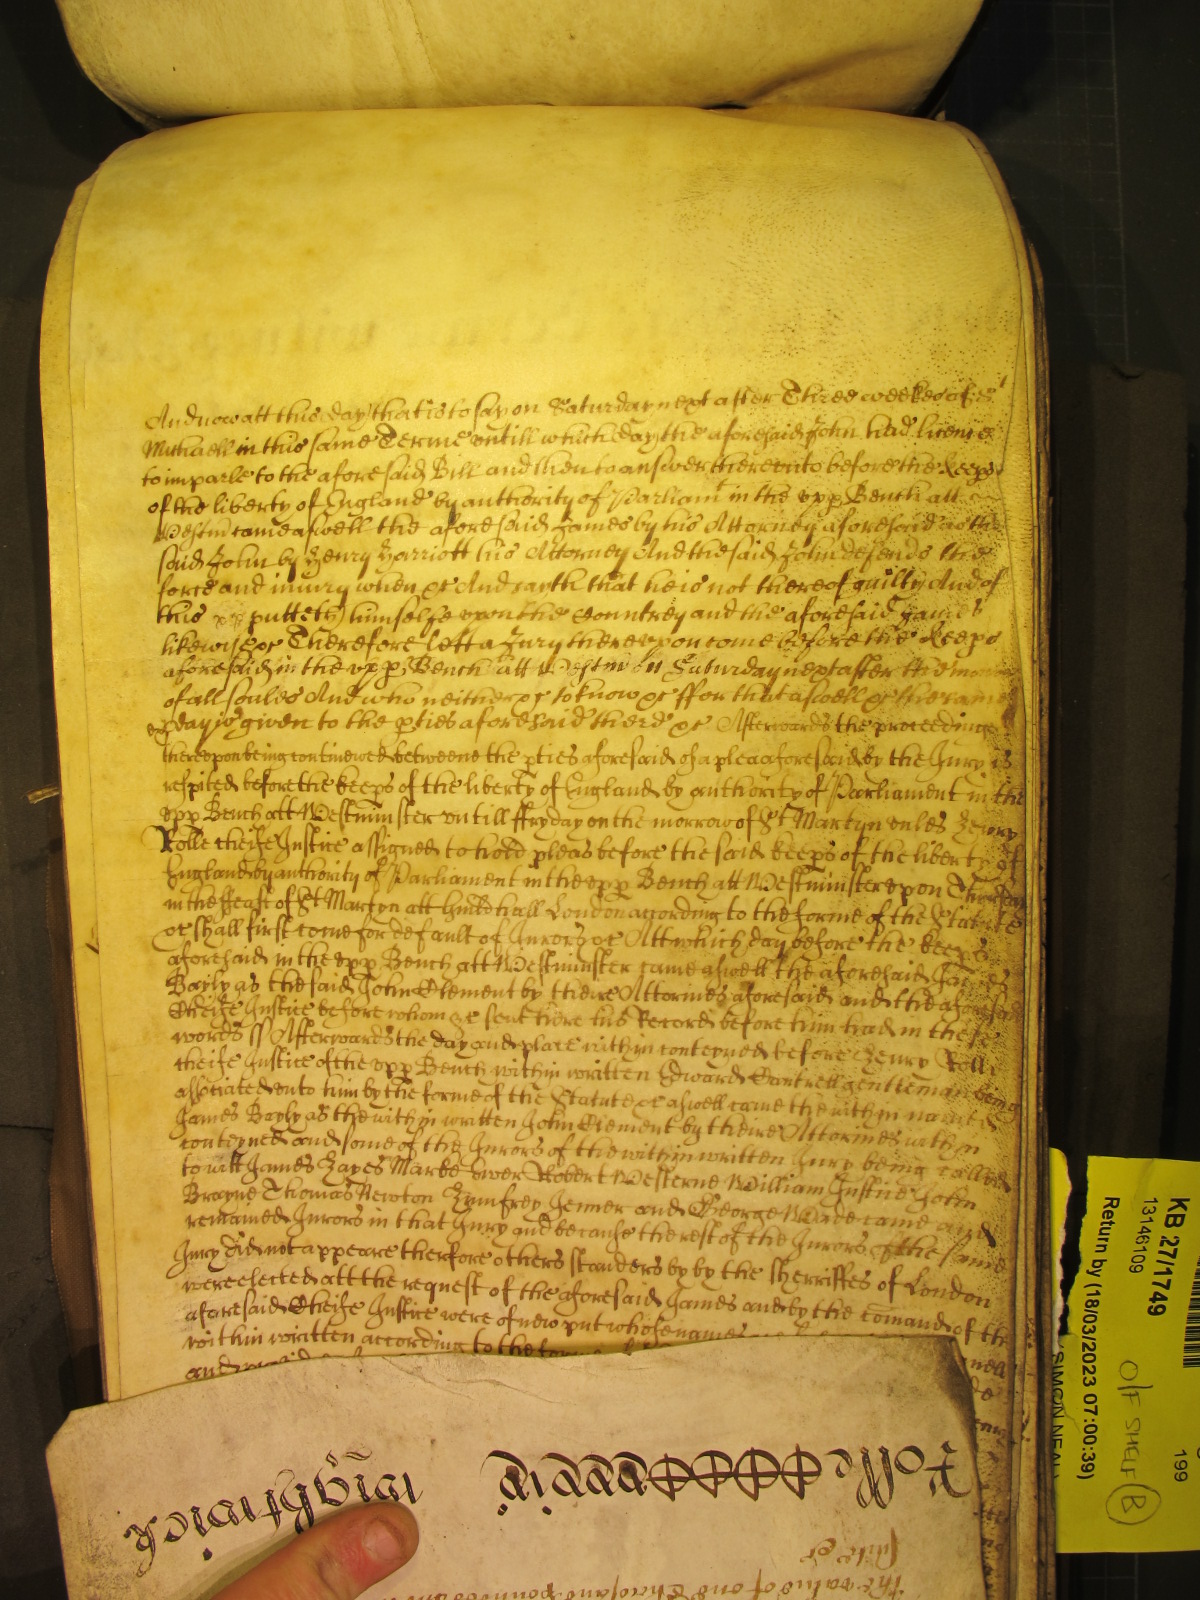 And now att this day that is to say on Saturday next after Three weekes of St
Michaell in this same Terme untill which day the aforesaid John had licence
to imparle to the aforesaid Bill and then to answer thereunto before the keeps
of the liberty of England by authority of Parliamt in the upp Bench att
Westm came aswell the aforesaid James by his Attorney aforesaid as the
said John by Henry Harriott his Attorney And the said John defends the
force and injury when &c And sayth that he is not thereof guilty And of
this putteth himselfe upon the Countrey and the aforesaid James
likewise &c Therefore lett a Jury thereupon come before the keeps
aforesaid in the upp Bench att Westm on Saturday next after the morrow
of all soules And who neither &c to know &c ffor that aswell &c the same
day is given to the pties aforesaid there &c Afterwards the proceedings
thereupon being continewed betweene the pties aforesaid of a plea aforesaid by the Jury is
respited before the keeps of the liberty of England by authority of Parliament in the
upp Bench att Westminster untill ffryday on the morrow of St Martyn unles Henry
Rolle cheife Justice assigned to hold pleas before the said keeps of the liberty of
England by authority of Parliament in the upp Bench att Westminster upon Thursday
in the ffeast of St Martyn att Guildhall London according to the forme of the Statute
&c shall first come for default of Jurors &c Att which day before the keeps
aforesaid in the upp Bench att Westminster came aswell the aforesaid James
Bayly as the said John Clement by theire Attornies aforesaid and the aforesaid
Cheife Justice before whom &c sent here his Record before him had in these
words ss Afterwards the day and place within conteyned before Henry Rolle
cheife Justice of the upp Bench within written Edward Cantrell gentleman being
associated unto him by the forme of the Statute &c aswell came the within named
James Bayly as the within written John Clement by theire Attornies within
conteyned and some of the Jurors of the within written Jury being called
to witt James Hayes Marke Robert Westerne William Justice John
Brayne Thomas Newton Humfrey Jenner and George Wade came and
remained Jurors in that Jury and because the rest of the Jurors of the same
Jury did not appeare therfore others standers by by the sherriffes of London
were elected att the request of the aforesaid James and by the comand of the
aforesaid Cheife Justice were of new put whose names
within written according to the forme
and
Rolle
the value of one thousand pounds
KB 27/1749
13146109
199
Return by (18/03/2023 07:00:39)
(SIMON NEAL)
O/F SHELF B